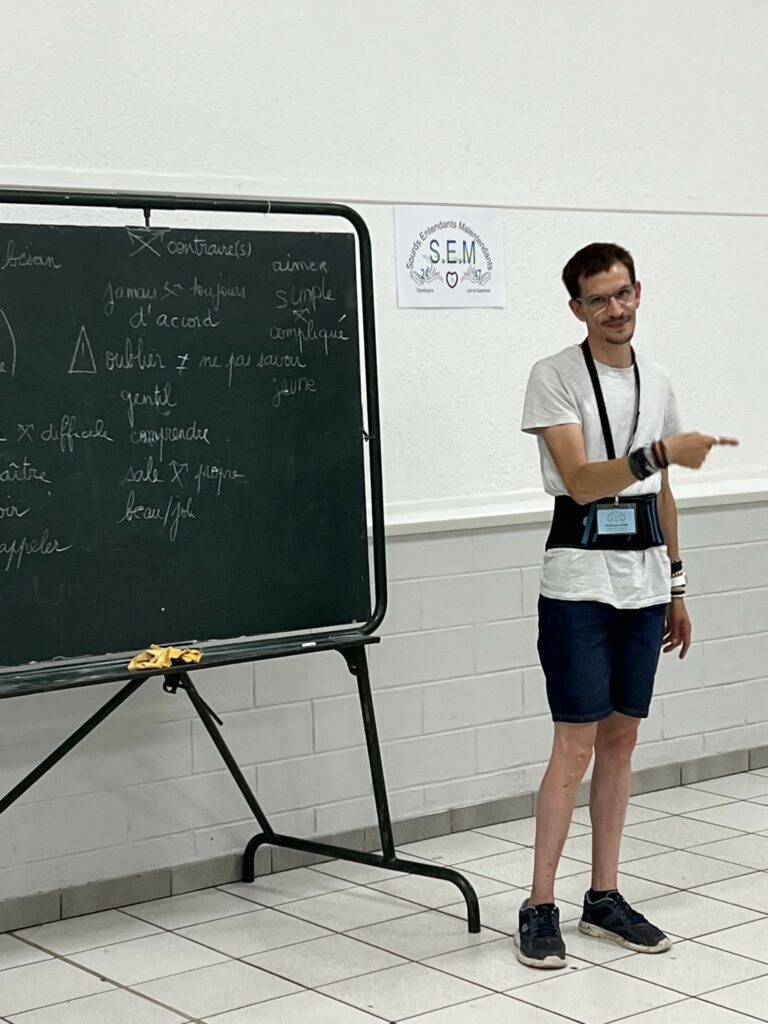 besoin
contraire(s)
jamais toujours
d'accord
oublier ≠ ne pas savoir
gentil
difficile comprendre
sale propre
beau/joli
appeler
aimer
simple
compliqué
jeune
Sourds Entendants Malentendants
S.E.M
24 47
Dordogne Lot-et-Garonne